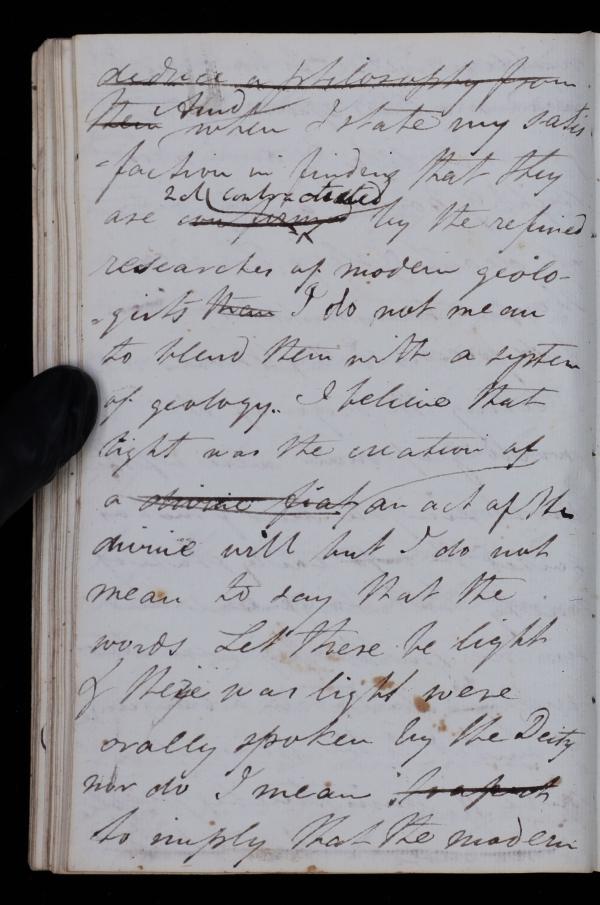 deduce a philosophy from
them And when I state my satis
-faction in finding that they
2d contradicted
are confirmed by the refined
researches of modern geolo-
-gists than I do not mean
to blend them with a system
of geology. I believe that
light was the creation of
a divine fiat, an act of the
divine will but I do not
mean to say that the
words Let there be light
& there was light were
orally spoken by the Deity
nor do I mean
to imply that the modern